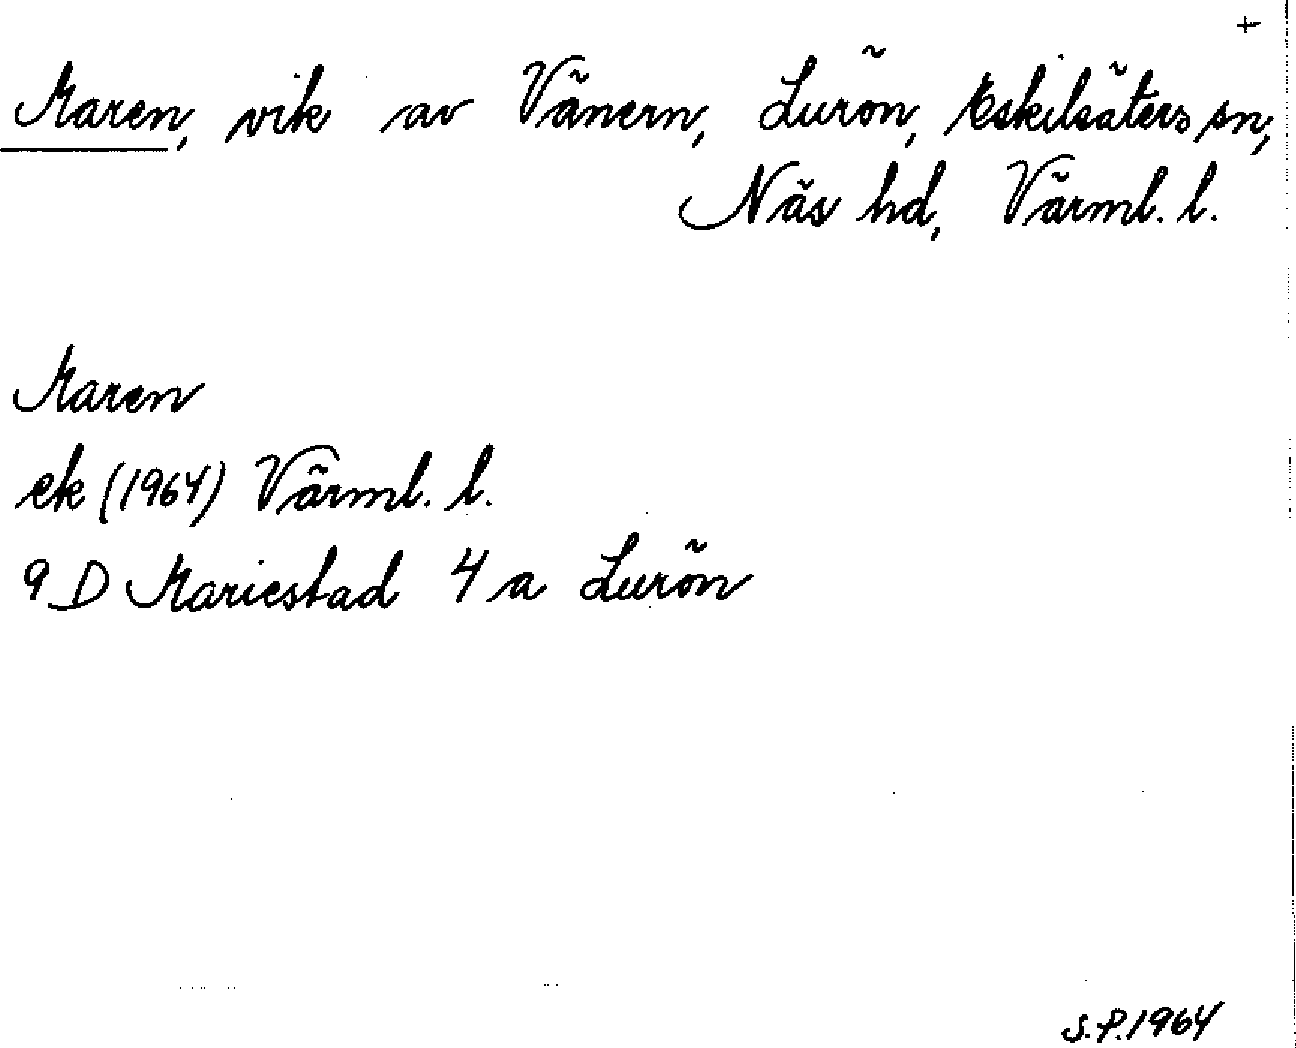 +
Maren, vik av Vänern, Lurön, Eskilsäters sn,
Näs hd, Värml. l.
Maren
ek (1964) Värml. l.
9 D Mariestad 4 a Lurön
S.P. 1964